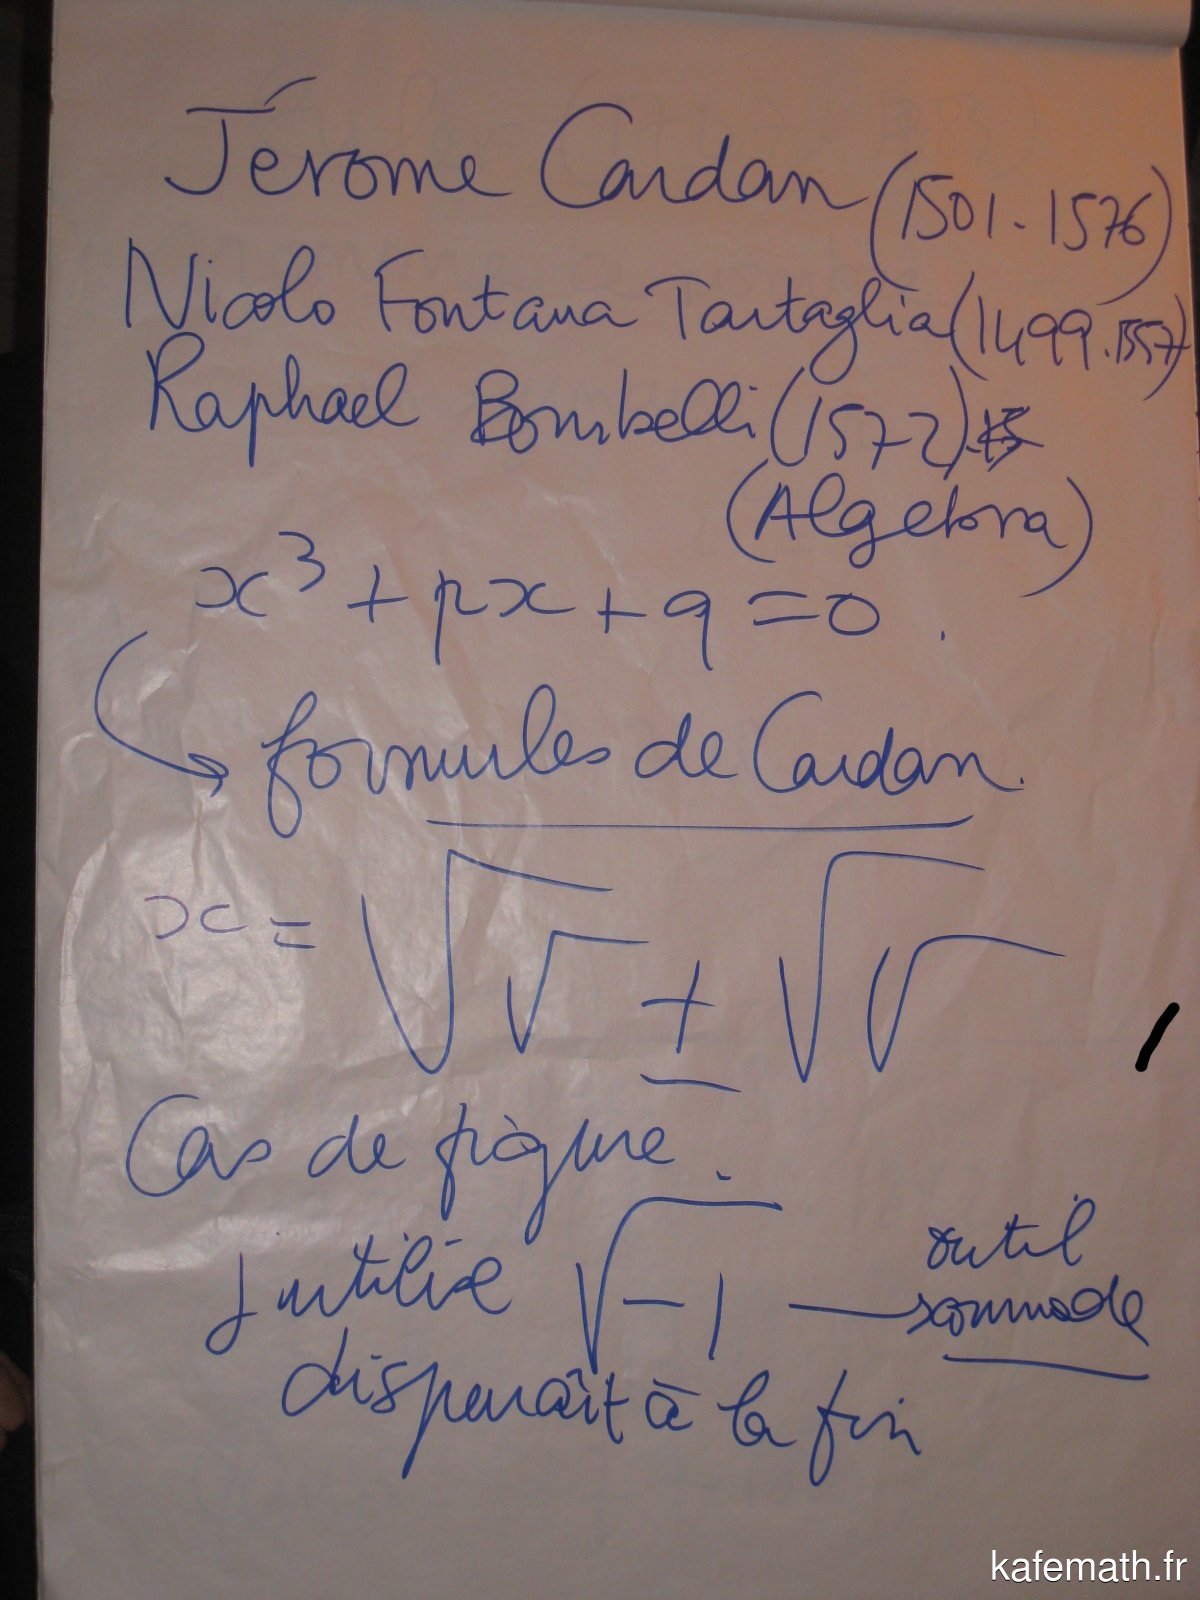 Jérome Cardan (1501-1576)
Nicolo Fontana Tartaglia (1499-1557)
Raphael Bombelli (1572)
(Algebra)
x³ + px + q = 0.
formules de Cardan.
x = √ √ ± √ √
Cas de figure.
J utilise √-1 — outil
commode
disparaît à la fin
kafemath.fr